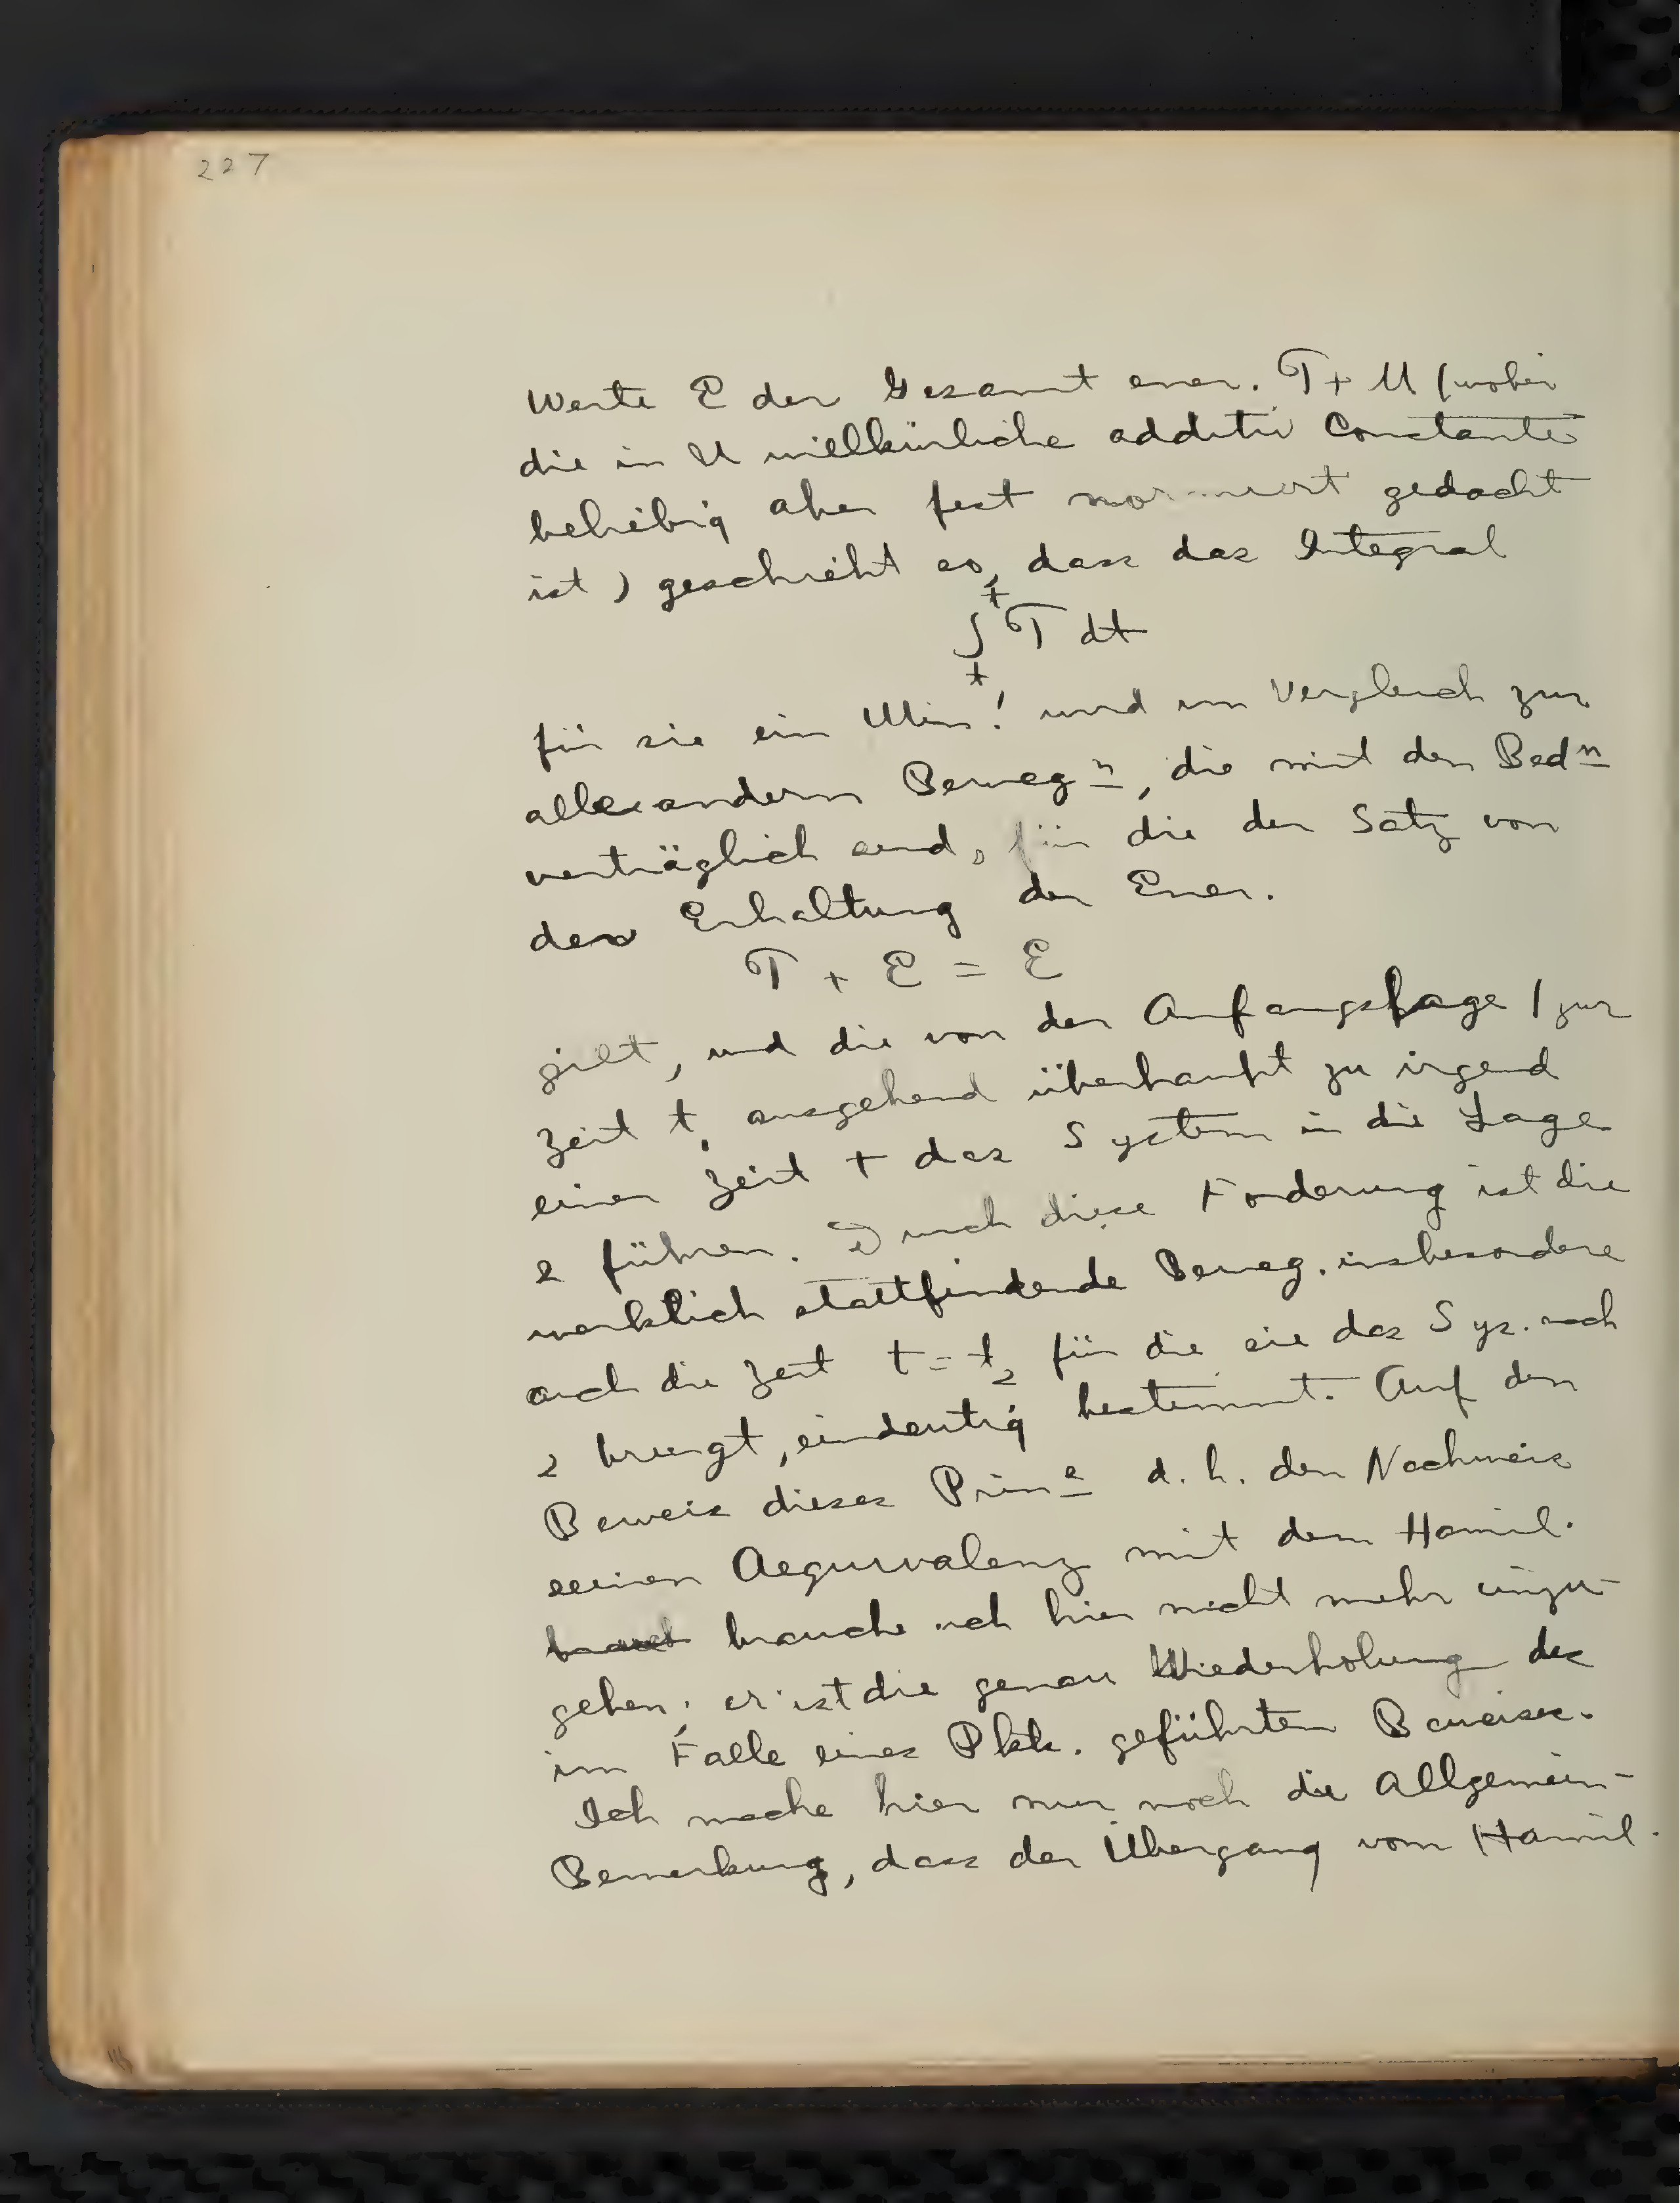 227
Werte E der Gesamt ener. T + U (wobei
die in U willkürliche additiv Constante
beliebig aber fest normiert gedacht
ist) geschieht so, dass das Integral
∫ₜᵗ T dt
für sie ein Min! wird im Vergleich zur
alle andern Bewegⁿ, die mit den Bedⁿ
verträglich sind, für die der Satz von
der Erhaltung der Ener.
T + E = E
gilt, und die von der Anfangslage 1 zur
Zeit t₁ ausgehend überhaupt zu irgend
einer Zeit t das System in die Lage
2 führen. Durch diese Forderung ist die
wirklich stattfindende Beweg. insbesondere
auch die Zeit t = t₂ für die sie das Sys. nach
2 bringt, eindeutig bestimmt. Auf den
Beweis dieses Prinᵉ d. h. den Nachweis
seiner Aequivalenz mit dem Hamil.
brauche ich hier nicht mehr einzu-
gehen; er ist die genau Wiederholung des
im Falle eines Pkts. geführten Beweises.
Ich mache hier nur noch die Allgemein-
Bemerkung, dass der Übergang vom Hamil.